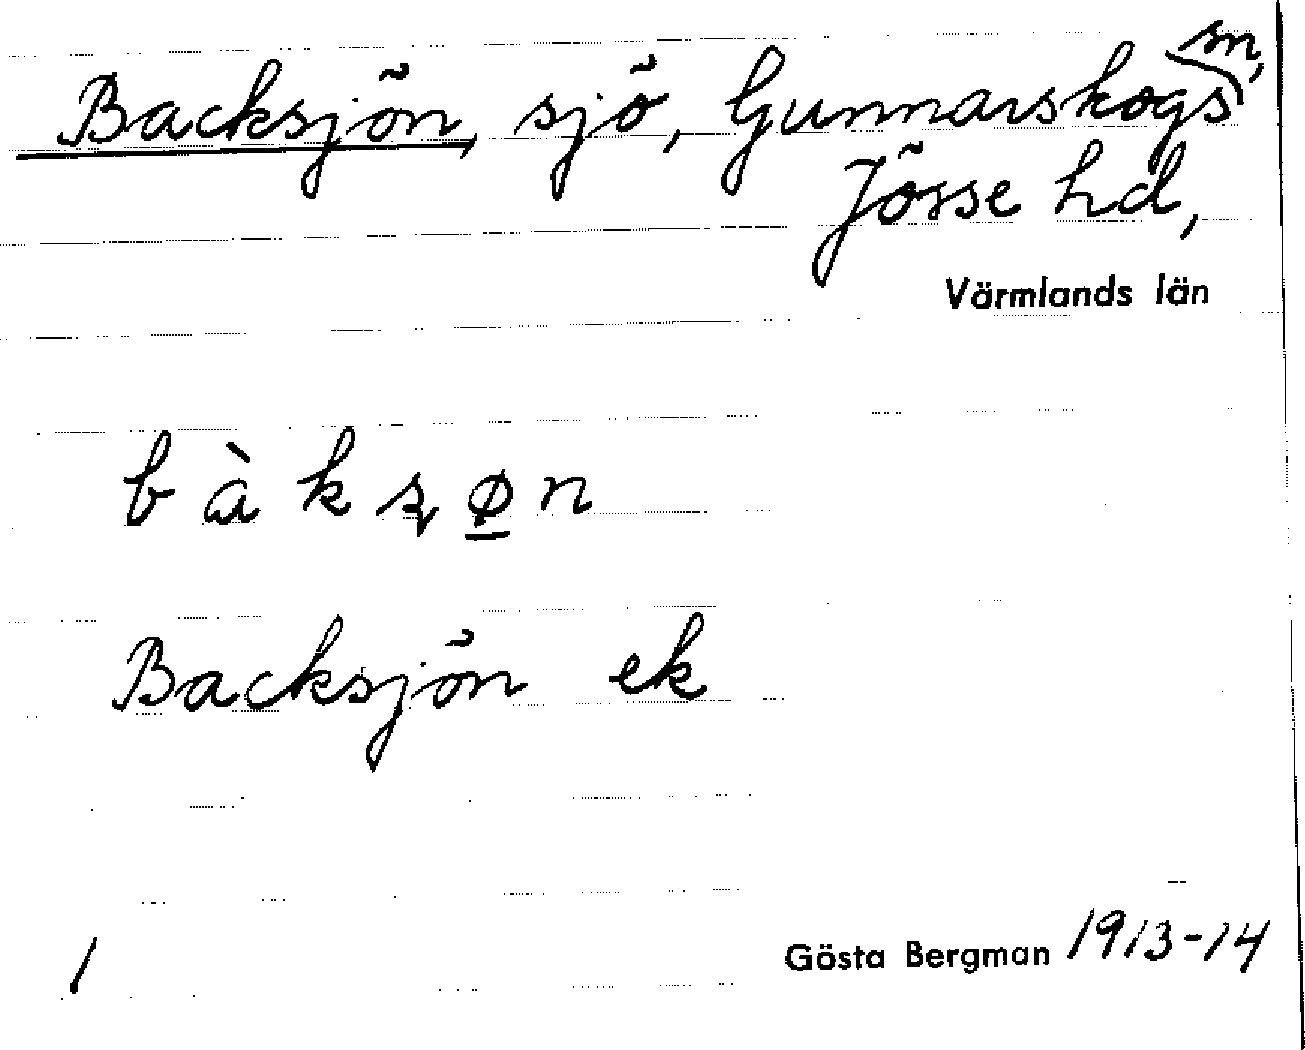 Backsjön, sjö, Gunnarskogs sn,
Jösse hd,
Värmlands län
b à k ʂ ø̲ n
Backsjön ek
1
Gösta Bergman 1913-14